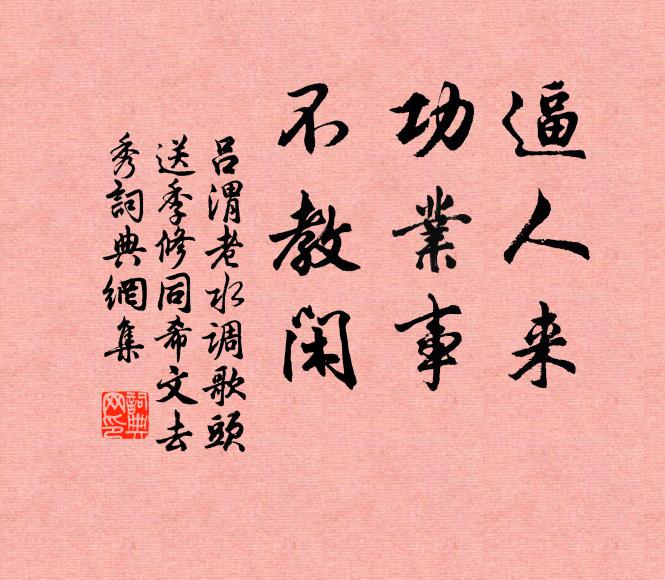 逼人来
功業事
不教閑
吕渭老水调歌頭
送季修同希文去
秀詞典網集
詞典
网印